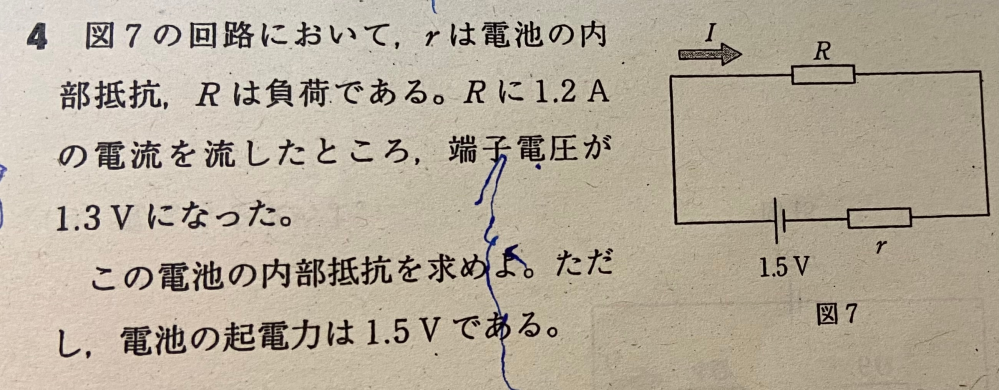 4 図7の回路において，rは電池の内
部抵抗，Rは負荷である。Rに1.2 A
の電流を流したところ，端子電圧が
1.3 Vになった。
この電池の内部抵抗を求めよ。ただ
し，電池の起電力は1.5 Vである。
I
R
1.5 V
r
図7